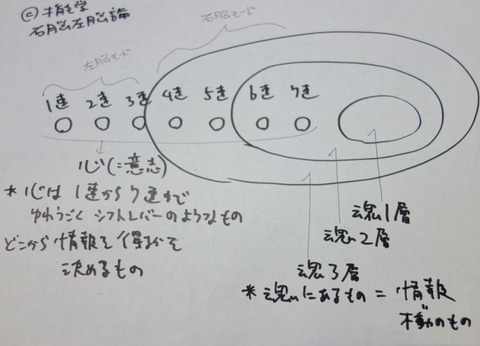 (c) 才能学
右脳左脳論
左脳モード
右脳モード
1速 2速 3速 4速 5速 6速 7速
心(=意志)
*心は1速から7速まで
シフトレバーのようなもの
どこから情報を得るかを
決めるもの
魂1層
魂2層
魂3層
*魂にあるもの=情報
不動のもの